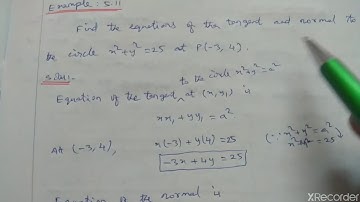 Example: 5.11
Find the equations of the tangent and normal to
the circle x²+y²=25 at P(-3,4).
Soln:
to the circle x²+y²=a²
Equation of the tangent ^ at (x₁,y₁) is
xx₁+yy₁=a²
At (-3,4),
x(-3)+y(4)=25
(∵ x²+y²=a²
x²+y²=25)
-3x+4y=25
Equation of the normal is
XRecorder